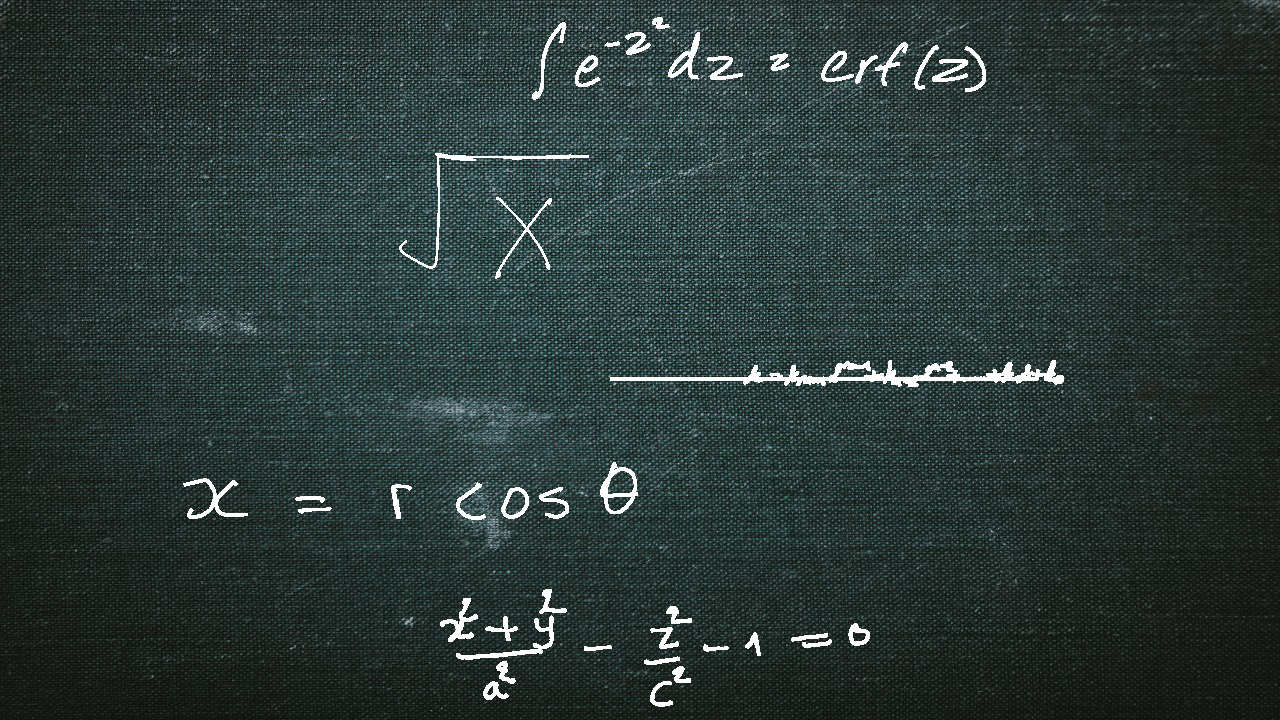 ∫ e^{-z^2} dz = erf(z)
√X
x = r cos θ
\frac{x^2 + y^2}{a^2} - \frac{z^2}{c^2} - 1 = 0